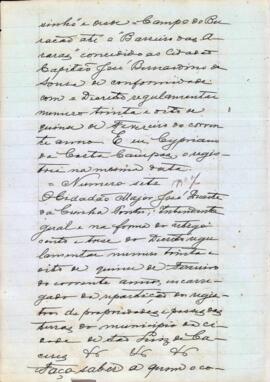 sinho" e desde - Campo do Bu-
racão até o "Barreiro das A-
raras" concedido ao Cidadão
Capitão José Bernardino de
Sousa de conformidade
com o Decreto regulamentar
numero trinta e oito de
quinze de Fevereiro do corren-
te anno. E eu Cypriano
da Costa Campos, o regis-
trei na mesma data.
- Numero sete
O Cidadão Major José Duarte
da Cunha Pontes, Intendente
Geral e na forma do
cento e doze do Decreto regu-
lamentar numero trinta e
oito de quinze de Fevereiro
do corrente anno, encarre-
gado da repartição do regis-
tro de propriedades e posses das
terras do municipio da ci-
dade de São Luiz de Ca-
ceres
Faço saber a quem o co-